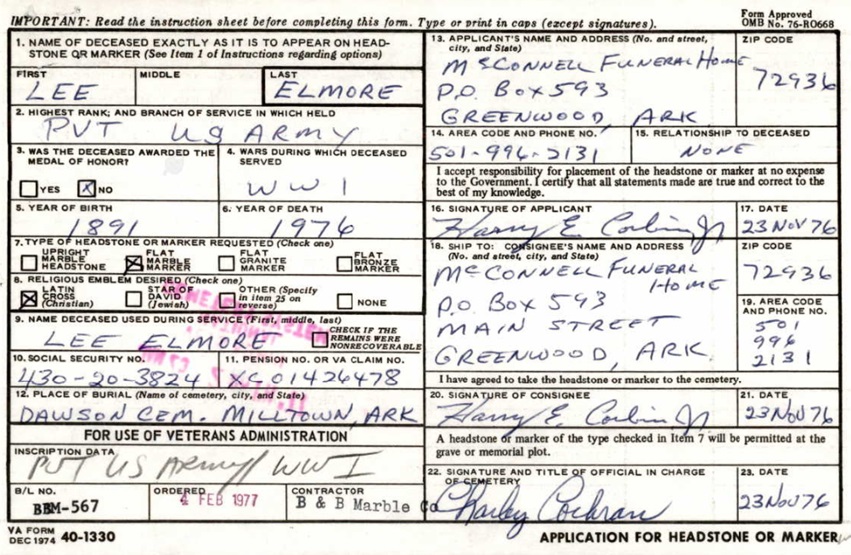 IMPORTANT: Read the instruction sheet before completing this form. Type or print in caps (except signatures).
Form Approved
OMB No. 76-RO668
1. NAME OF DECEASED EXACTLY AS IT IS TO APPEAR ON HEAD-
STONE OR MARKER (See Item 1 of Instructions regarding options)
FIRST MIDDLE LAST
LEE ELMORE
2. HIGHEST RANK; AND BRANCH OF SERVICE IN WHICH HELD
PVT US ARMY
3. WAS THE DECEASED AWARDED THE
MEDAL OF HONOR?
YES X NO
4. WARS DURING WHICH DECEASED
SERVED
WW I
5. YEAR OF BIRTH
1891
6. YEAR OF DEATH
1976
7. TYPE OF HEADSTONE OR MARKER REQUESTED (Check one)
UPRIGHT
MARBLE
HEADSTONE
X FLAT
MARBLE
MARKER
FLAT
GRANITE
MARKER
FLAT
BRONZE
MARKER
8. RELIGIOUS EMBLEM DESIRED (Check one)
X LATIN
CROSS
(Christian)
STAR OF
DAVID
(Jewish)
OTHER (Specify
in item 25 on
reverse)
NONE
9. NAME DECEASED USED DURING SERVICE (First, middle, last)
LEE ELMORE
CHECK IF THE
REMAINS WERE
NONRECOVERABLE
10. SOCIAL SECURITY NO.
430-20-3824
11. PENSION NO. OR VA CLAIM NO.
XC 01426478
12. PLACE OF BURIAL (Name of cemetery, city, and State)
DAWSON CEM. MILLTOWN, ARK
FOR USE OF VETERANS ADMINISTRATION
INSCRIPTION DATA
PVT US Army WW I
B/L NO.
BBM-567
ORDERED
4 FEB 1977
CONTRACTOR
B & B Marble Co
13. APPLICANT'S NAME AND ADDRESS (No. and street,
city, and State)
McCONNELL FUNERAL HOME
P.O. BOX 593
GREENWOOD, ARK
ZIP CODE
72936
14. AREA CODE AND PHONE NO.
501-996-2131
15. RELATIONSHIP TO DECEASED
NONE
I accept responsibility for placement of the headstone or marker at no expense
to the Government. I certify that all statements made are true and correct to the
best of my knowledge.
16. SIGNATURE OF APPLICANT
Harry E. Corbin Jr
17. DATE
23 NOV 76
18. SHIP TO: CONSIGNEE'S NAME AND ADDRESS
(No. and street, city, and State)
McCONNELL FUNERAL
HOME
P.O. BOX 593
MAIN STREET
GREENWOOD, ARK.
ZIP CODE
72936
19. AREA CODE
AND PHONE NO.
501
996
2131
I have agreed to take the headstone or marker to the cemetery.
20. SIGNATURE OF CONSIGNEE
Harry E. Corbin Jr.
21. DATE
23 NOV 76
A headstone or marker of the type checked in Item 7 will be permitted at the
grave or memorial plot.
22. SIGNATURE AND TITLE OF OFFICIAL IN CHARGE
OF CEMETERY
Charley Cochran
23. DATE
23 NOV 76
VA FORM
DEC 1974 40-1330
APPLICATION FOR HEADSTONE OR MARKER